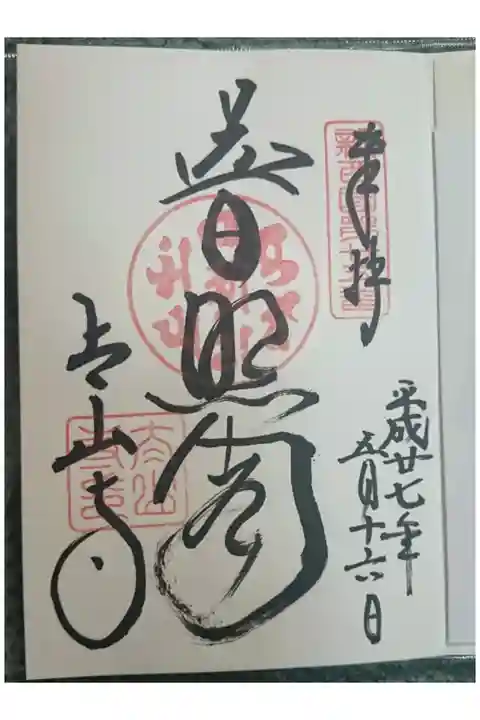 奉拝
平成廿七年
五月十六日
普照閣
太山寺